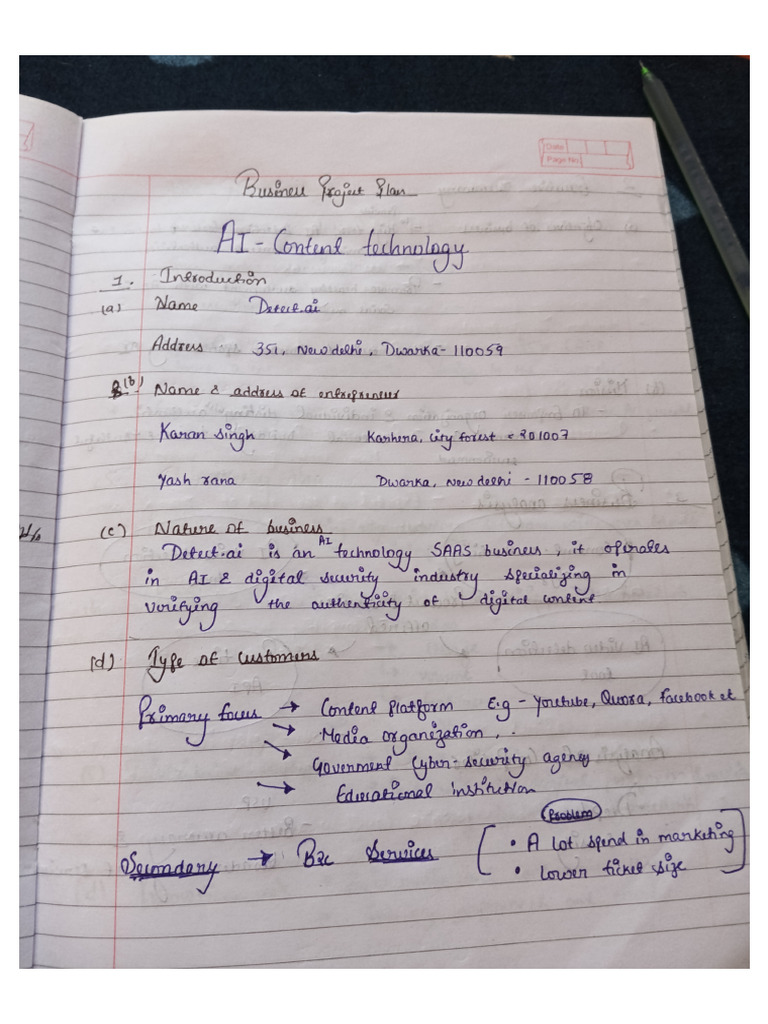 Date
Page No.
Business Project Plan
AI - Content technology
1. Introduction
(a) Name Detect.ai
Address 351, New delhi, Dwarka - 110059
(b) Name & address of entrepreneur
Karan Singh Karhera, city forest = 201007
Yash rana Dwarka, New delhi - 110058
(c) Nature of business
Detect.ai is an AI technology SAAS business, it operates
in AI & digital security industry specializing in
verifying the authenticity of digital content
(d) Type of customers
Primary focus → Content platform E.g - Youtube, Quora, Facebook et
→ Media organization,
→ Government Cyber-security agency
→ Educational institution
Problem
Secondary → B2C Services [ • A lot spend in marketing
• Lower ticket size ]